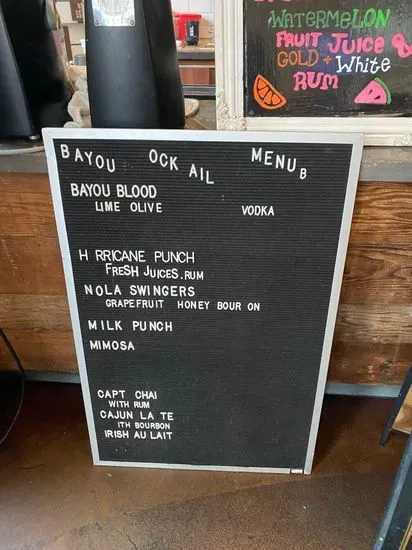 WATERMELON
FRUIT JUICE &
GOLD + White
RUM
BAYOU OCK AIL MENU B
BAYOU BLOOD
LIME OLIVE VODKA
H RRICANE PUNCH
FRESH JUICES.RUM
NOLA SWINGERS
GRAPEFRUIT HONEY BOUR ON
MILK PUNCH
MIMOSA
CAPT CHAI
WITH RUM
CAJUN LA TE
ITH BOURBON
IRISH AU LAIT